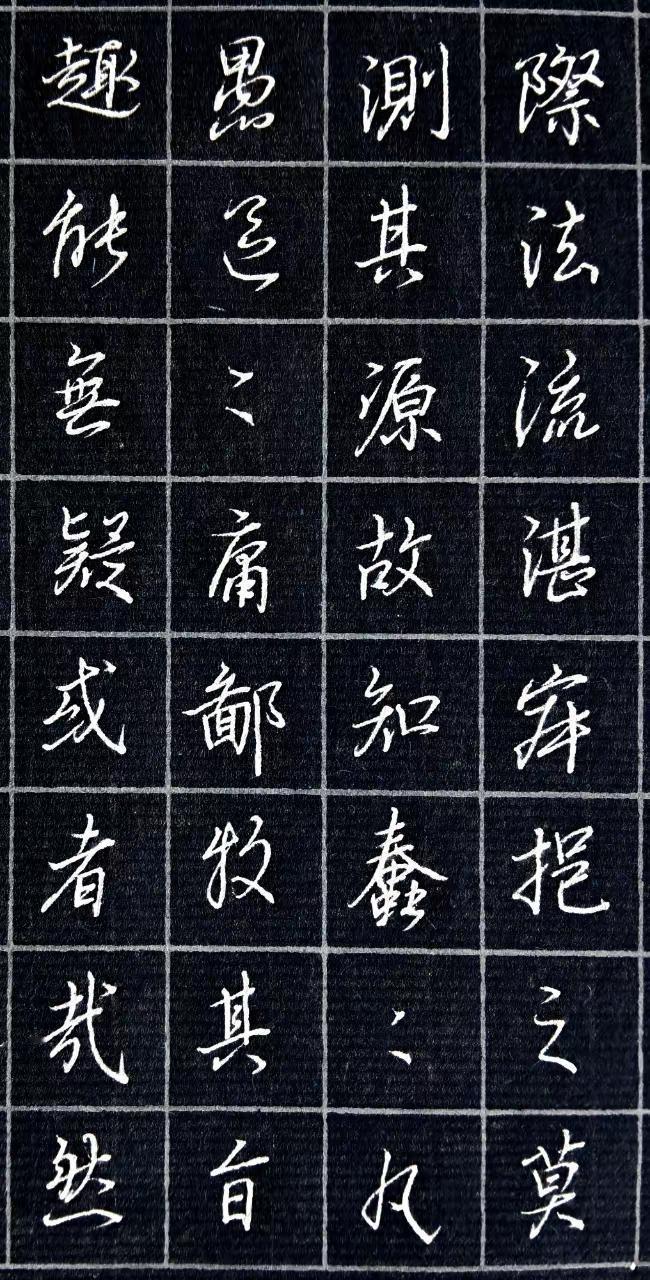 際法流湛寂挹之莫
測其源故知蠢〻凡
愚區〻庸鄙投其旨
趣能無疑或者哉然